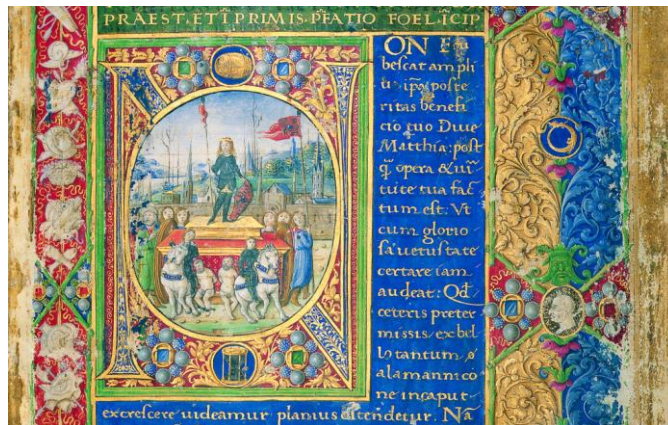 PRAEST.ETĪ PRIMIS.P̄FATIO FOEL.ĪCIP
NON
bescat ampli
ip̄a poste
ritas benefi
cio tuo Diue
Matthia: post
q̄ opera & uir
tute tua fac
tum est. Vt
cum glorio
sa uetustate
certare iam
audeat: Qd̄
ceteris preter
missis ex bel
lo tantum
alamannico
ne in caput
excrescere uideamur planius ostendetur. Nā